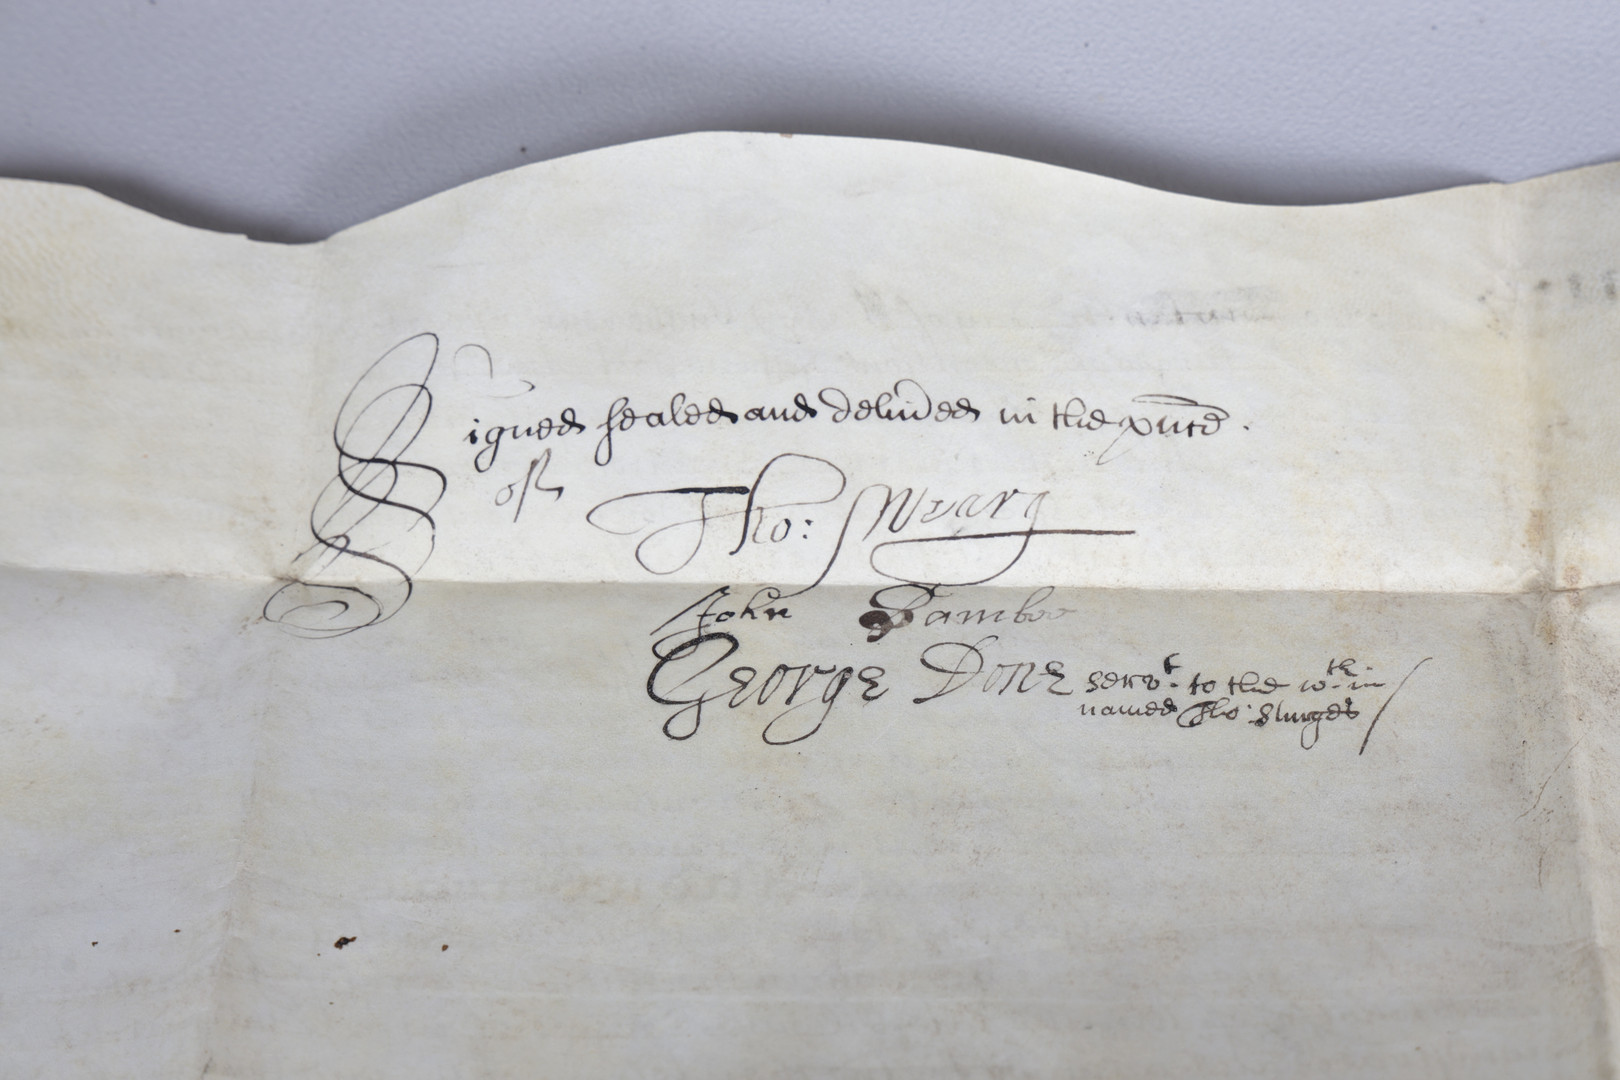 Signed sealed and delived in the pnce.
of
Tho: Wearg
John Bamboe
George Done servt. to the wth.in
named Tho: Sturges